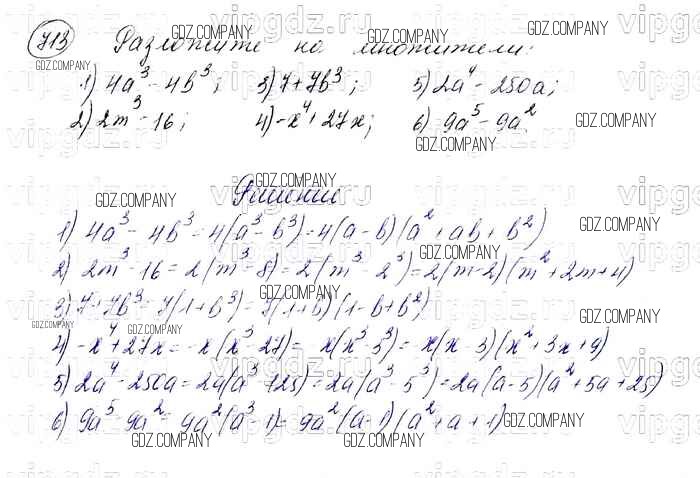 713 Разложите на множители:
1) 4a³ - 4b³; 3) 7 + 7b³; 5) 2a⁴ - 250a;
2) 2m³ - 16; 4) -x⁴ + 27x; 6) 9a⁵ - 9a²
Решение
1) 4a³ - 4b³ = 4(a³ - b³) = 4(a - b)(a² + ab + b²)
2) 2m³ - 16 = 2(m³ - 8) = 2(m³ - 2³) = 2(m - 2)(m² + 2m + 4)
3) 7 + 7b³ = 7(1 + b³) = 7(1 + b)(1 - b + b²)
4) -x⁴ + 27x = -x(x³ - 27) = -x(x³ - 3³) = -x(x - 3)(x² + 3x + 9)
5) 2a⁴ - 250a = 2a(a³ - 125) = 2a(a³ - 5³) = 2a(a - 5)(a² + 5a + 25)
6) 9a⁵ - 9a² = 9a²(a³ - 1) = 9a²(a - 1)(a² + a + 1)
GDZ.COMPANY
vipgdz.ru